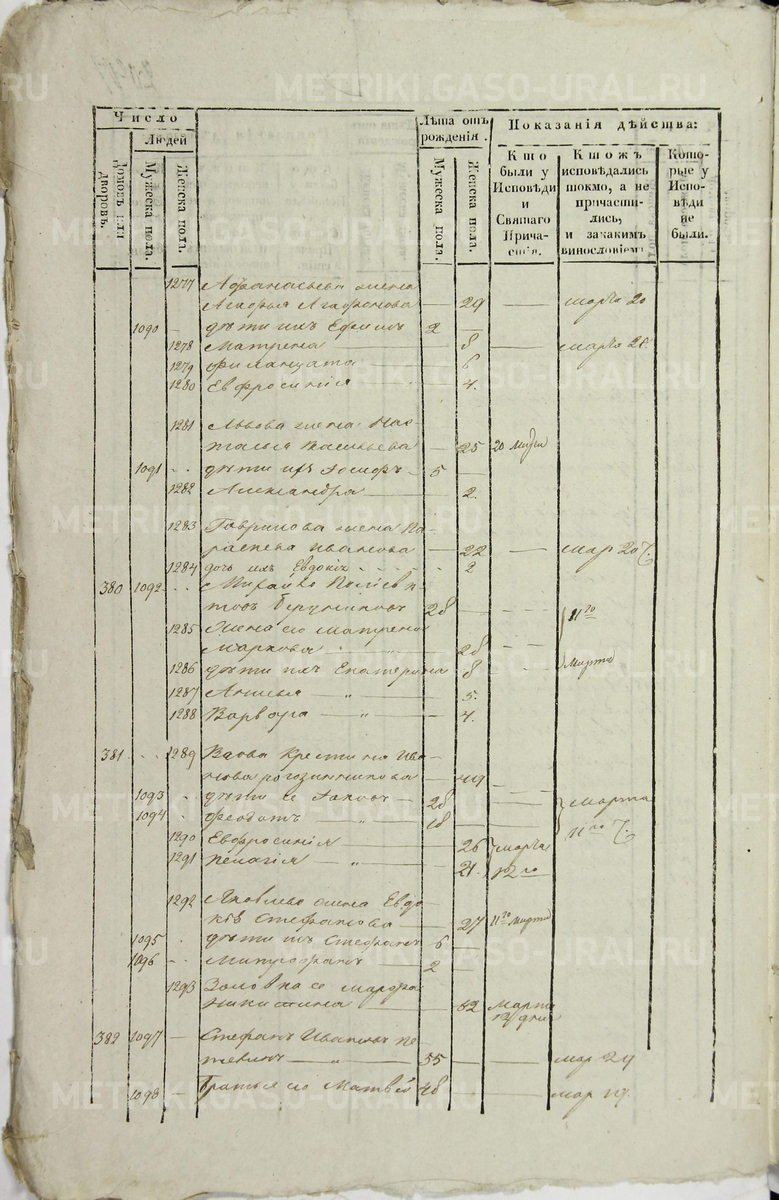 METRIKI.GASO-URAL.RU
Число
Людей
Домовъ или дворовъ.
Мужеска пола.
Женска пола.
Лѣта отъ рожденія.
Мужеска пола.
Женска пола.
Показанія дѣйства:
Кто были у Исповѣди и Святаго Причастія.
Кто жъ исповѣдались токмо, а не причастились, и за какимъ винословіемъ.
Которые у Исповѣди не были.
1277 Афанасьева жена
Агафья Агафонова 29 марта 20
1090 дѣти ихъ Ефимъ 2
1278 Матрена 8
1279 6
1280 Евфросинія 4.
1281 Львова жена На-
талья Васильева 25 20 марта
1091 дѣти ихъ Іосифъ 5
1282 Александра 2.
1283 Гаврилова жена Па-
раскева Иванова 22 мар 20
1284 дочь ихъ Евдокія 2
380 1092 Михайло
28 11го
1285 Жена его Матрена
Маркова 28
1286 дѣти ихъ Екатерина 8 Марта
1287 Анисья " 5.
1288 Варвара " 4.
381 1289 Вдова Крестина Ива-
нова рогозинникова 49
1093 дѣти ея Іаковъ 28 марта
1094 Феодотъ " 18 11го
1290 Евфросинія 26 марта
1291 Пелагія " 21. 12го
1292 Яковлева жена Евдо-
кія Стефанова 27 11го марта
1095 дѣти ихъ Стефанъ 6
1096 Митрофанъ 2
1293 Золовка ее Марфа
Никитина 52 Марта
12 дня
382 1097 Стефанъ Ивановъ
" 55 мар 29
1098 Братья его Матвей 48 мар 19.